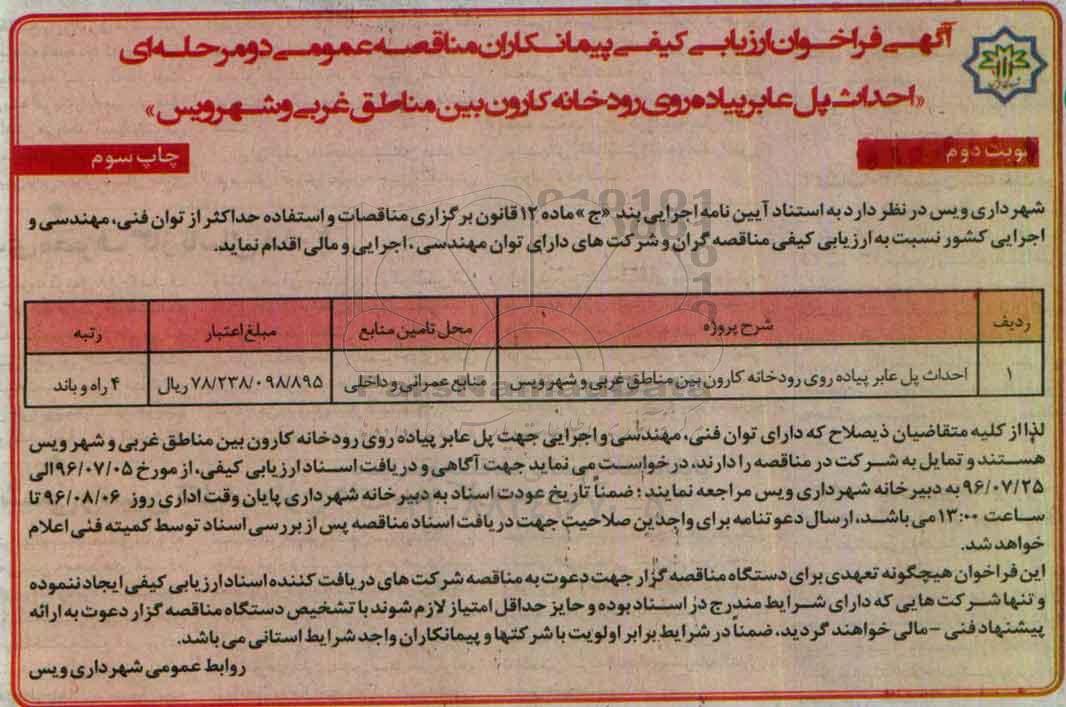 آگهی فراخوان ارزیابی کیفی پیمانکاران مناقصه عمومی دومرحله‌ای
«احداث پل عابر پیاده روی رودخانه کارون بین مناطق غربی و شهر ویس»
نوبت دوم
چاپ سوم
شهرداری ویس در نظر دارد به استناد آیین نامه اجرایی بند «ج» ماده ۱۲ قانون برگزاری مناقصات و استفاده حداکثر از توان فنی، مهندسی و
اجرایی کشور نسبت به ارزیابی کیفی مناقصه گران و شرکت های دارای توان مهندسی، اجرایی و مالی اقدام نماید.
ردیف شرح پروژه محل تامین منابع مبلغ اعتبار رتبه
۱ احداث پل عابر پیاده روی رودخانه کارون بین مناطق غربی و شهر ویس منابع عمرانی و داخلی ۷۸/۲۳۸/۰۹۸/۸۹۵ ریال ۴ راه و باند
ParsNamadData
لذا از کلیه متقاضیان ذیصلاح که دارای توان فنی، مهندسی و اجرایی جهت پل عابر پیاده روی رودخانه کارون بین مناطق غربی و شهر ویس
هستند و تمایل به شرکت در مناقصه را دارند، درخواست می نماید جهت آگاهی و دریافت اسناد ارزیابی کیفی، از مورخ ۹۶/۰۷/۰۵ الی
۹۶/۰۷/۲۵ به دبیرخانه شهرداری ویس مراجعه نمایند؛ ضمناً تاریخ عودت اسناد به دبیرخانه شهرداری پایان وقت اداری روز ۹۶/۰۸/۰۶ تا
ساعت ۱۳:۰۰ می باشد، ارسال دعوتنامه برای واجدین صلاحیت جهت دریافت اسناد مناقصه پس از بررسی اسناد توسط کمیته فنی اعلام
خواهد شد.
این فراخوان هیچگونه تعهدی برای دستگاه مناقصه گزار جهت دعوت به مناقصه شرکت های دریافت کننده اسناد ارزیابی کیفی ایجاد ننموده
و تنها شرکت هایی که دارای شرایط مندرج در اسناد بوده و حایز حداقل امتیاز لازم شوند با تشخیص دستگاه مناقصه گزار دعوت به ارائه
پیشنهاد فنی - مالی خواهند گردید، ضمناً در شرایط برابر اولویت با شرکتها و پیمانکاران واجد شرایط استانی می باشد.
روابط عمومی شهرداری ویس